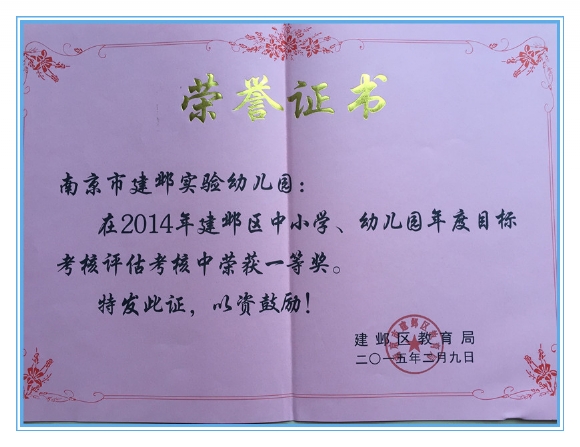 荣誉证书
南京市建邺实验幼儿园：
在2014年建邺区中小学、幼儿园年度目标
考核评估考核中荣获一等奖。
特发此证，以资鼓励！
建邺区教育局
二〇一五年二月九日